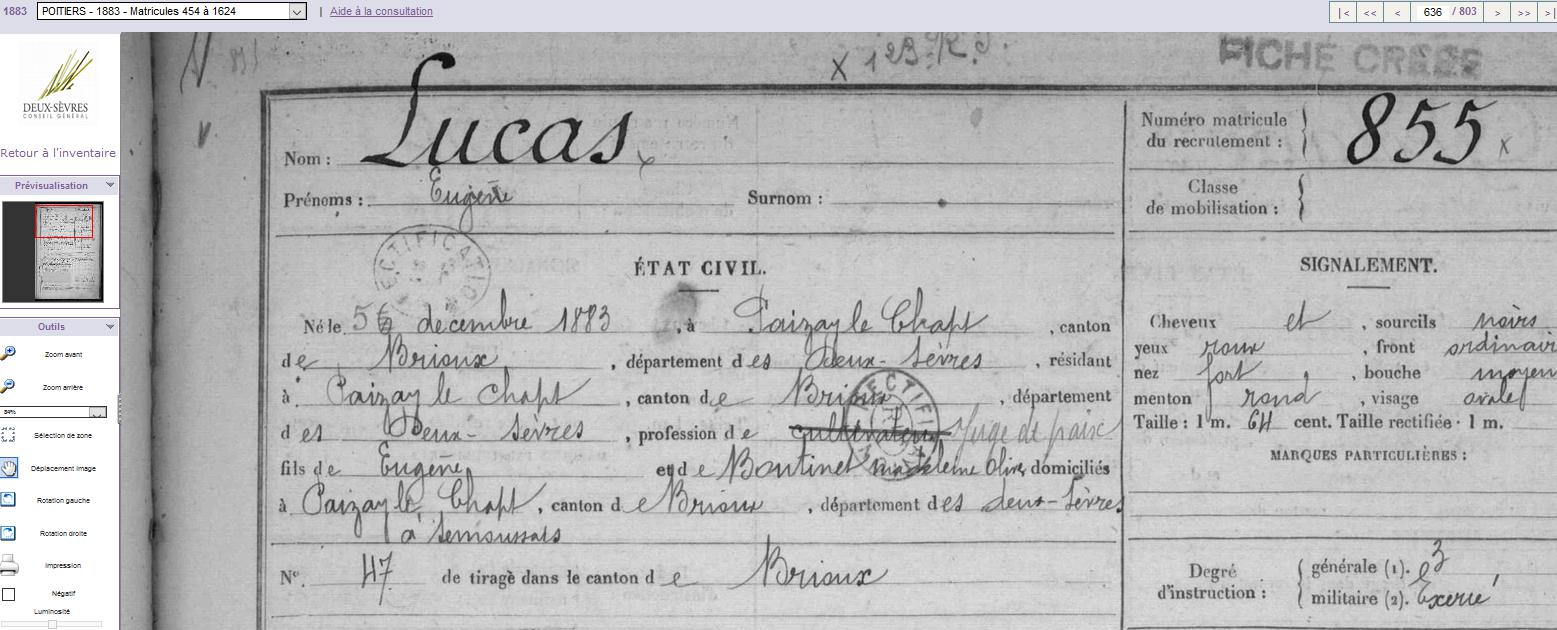 1883 POITIERS - 1883 - Matricules 454 à 1624 | Aide à la consultation |< << < 636 / 803 > >> >|
DEUX-SÈVRES
CONSEIL GÉNÉRAL
Retour à l'inventaire
Prévisualisation
Outils
Zoom avant
Zoom arrière
84%
Sélection de zone
Déplacement image
Rotation gauche
Rotation droite
Impression
Négatif
Luminosité
x 123 R.I.
FICHE CRÉÉE
Nom : Lucas x
Prénoms : Eugène Surnom :
ÉTAT CIVIL.
Né le 5 décembre 1883, à Paizay le Chapt, canton
de Brioux, département des Deux-Sèvres, résidant
à Paizay le chapt, canton de Brioux, département
des Deux-Sèvres, profession de cultivateur Juge de paix
fils de Eugène et de Boutinet madeleine Olive domiciliés
à Paizay le Chapt, canton de Brioux, département des deux-Sèvres
à Semoussais
N° 47 de tirage dans le canton de Brioux
Numéro matricule
du recrutement : 855 x
Classe
de mobilisation :
SIGNALEMENT.
Cheveux et, sourcils noirs
yeux roux, front ordinair
nez fort, bouche moyen
menton rond, visage ovale
Taille : 1 m. 64 cent. Taille rectifiée · 1 m.
MARQUES PARTICULIÈRES :
Degré
d'instruction :
générale (1). 3
militaire (2). Exercé